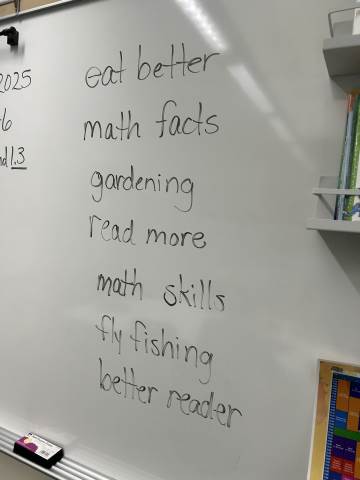 2025
eat better
math facts
1.3
gardening
read more
math skills
fly fishing
better reader